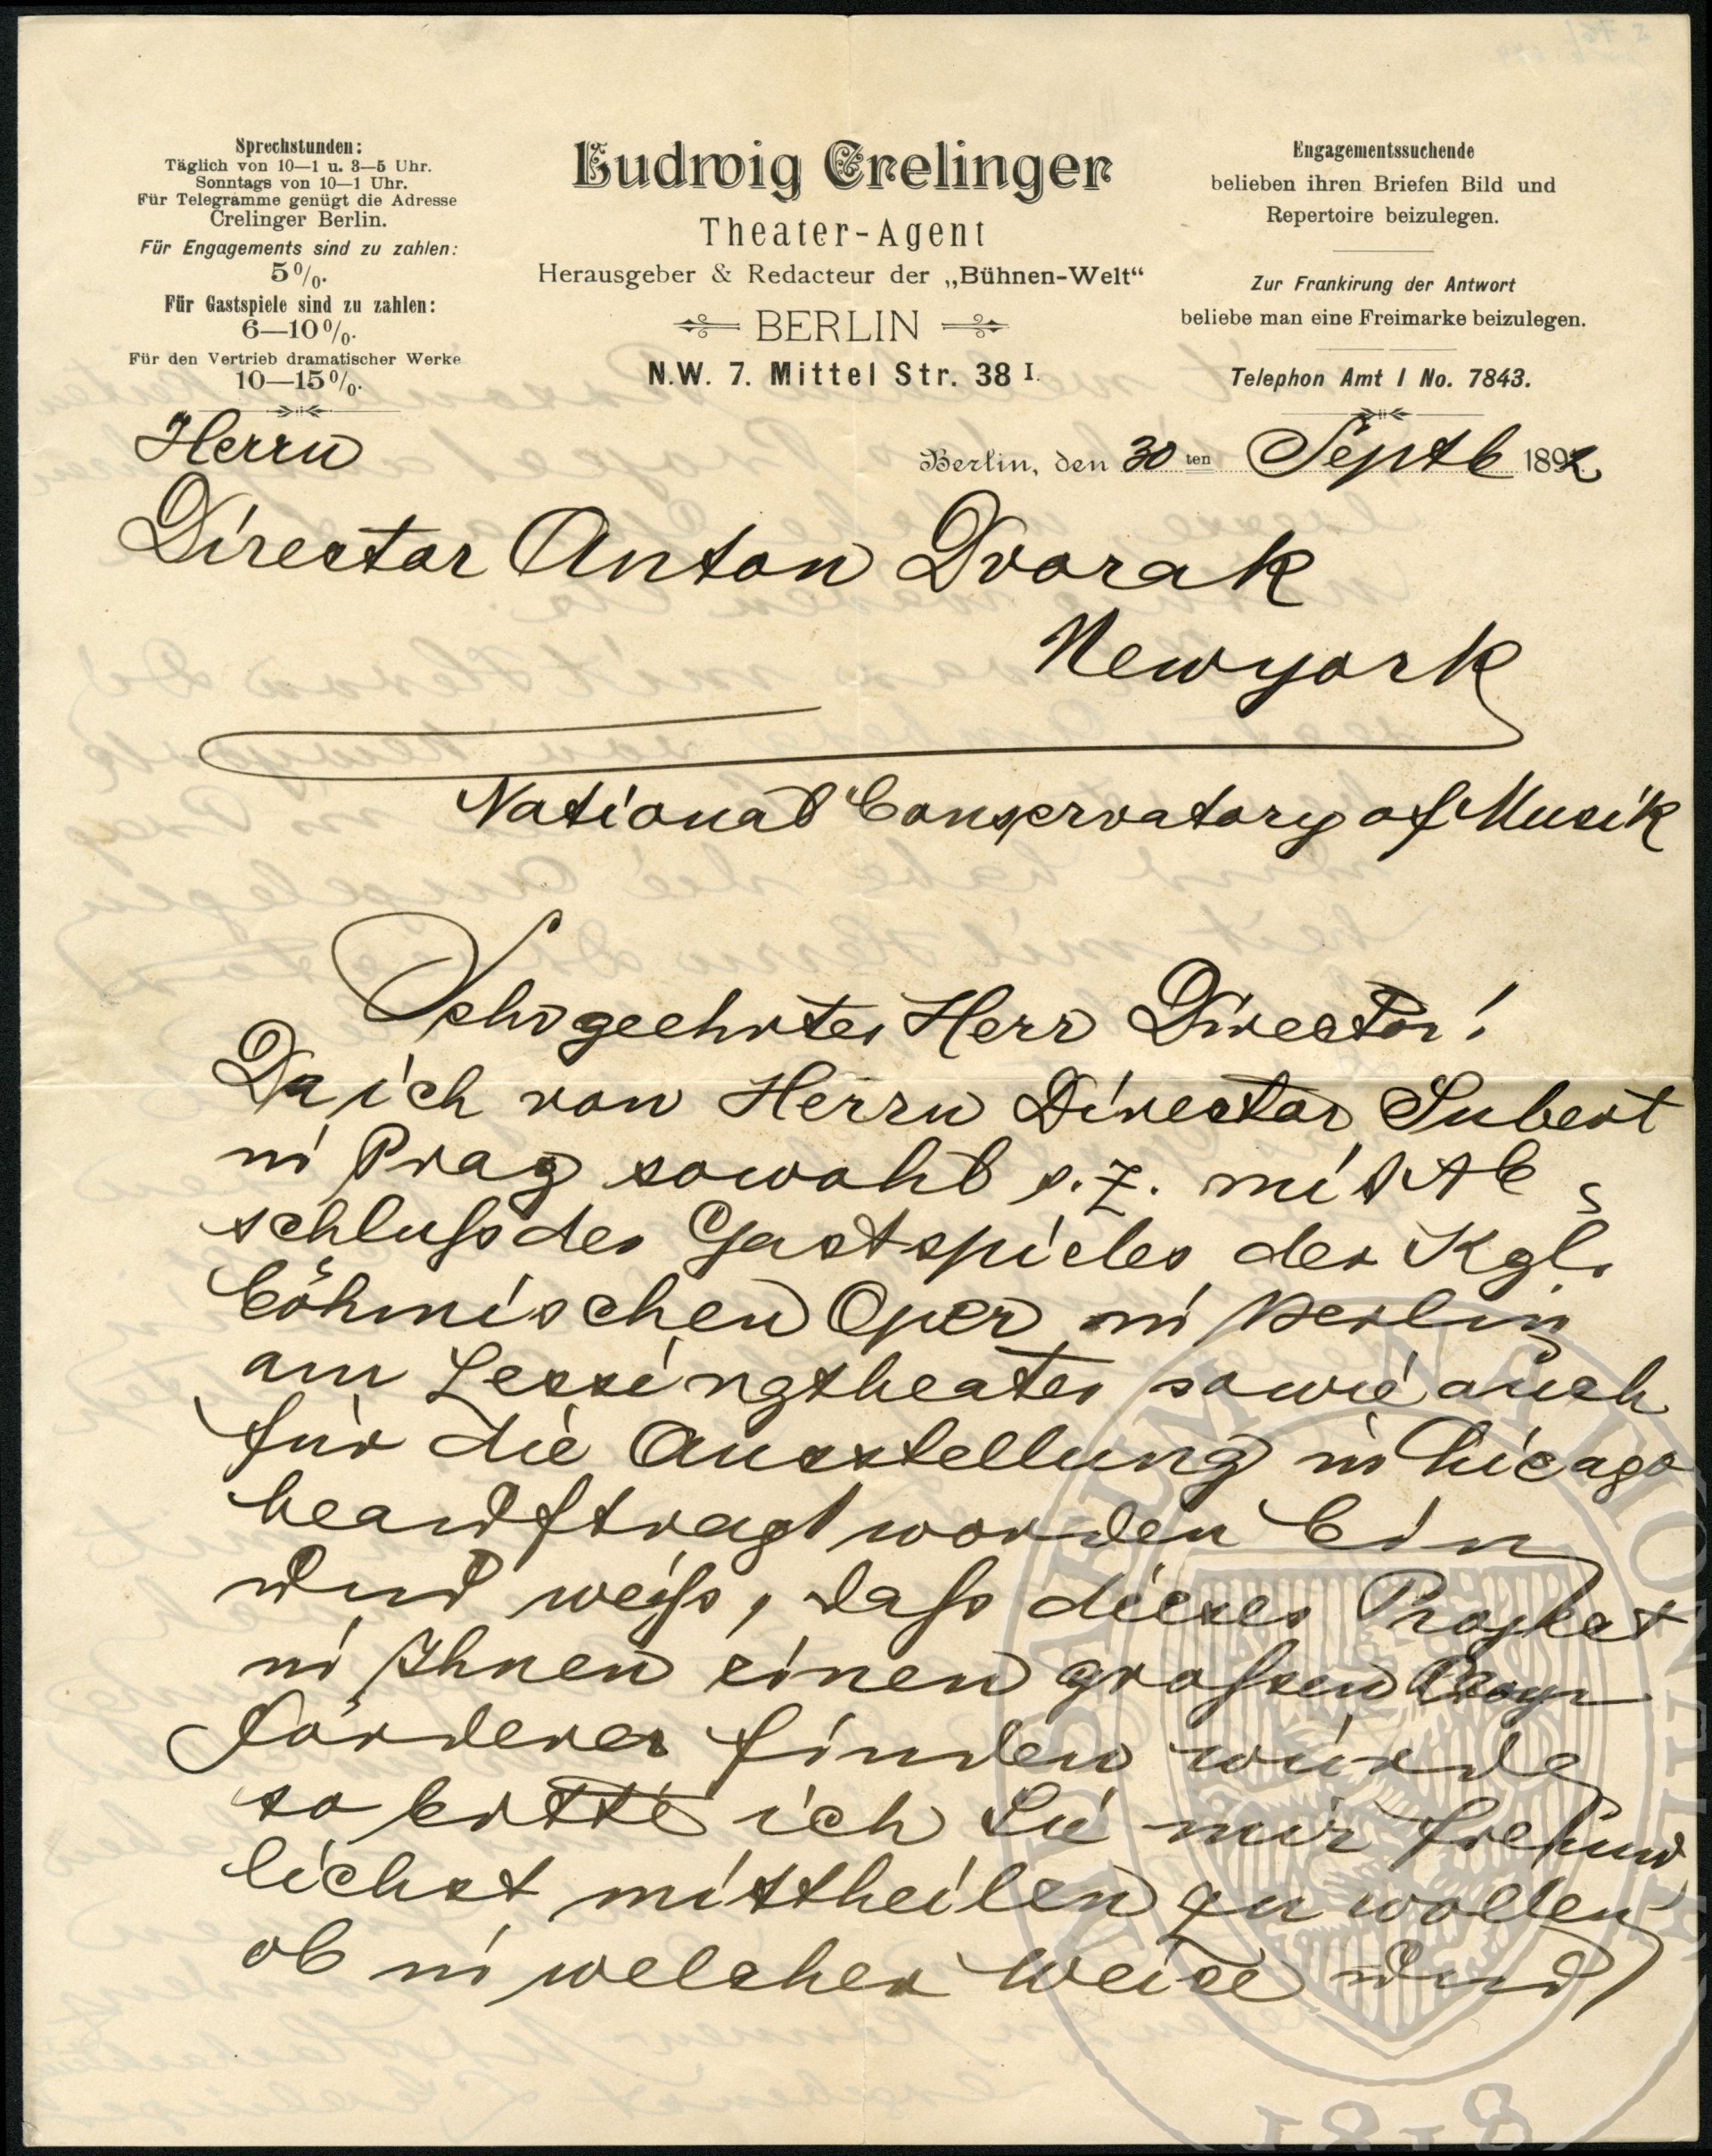 Sprechstunden:
Täglich von 10—1 u. 3—5 Uhr.
Sonntags von 10—1 Uhr.
Für Telegramme genügt die Adresse
Crelinger Berlin.
Für Engagements sind zu zahlen:
5%.
Für Gastspiele sind zu zahlen:
6—10%.
Für den Vertrieb dramatischer Werke
10—15%.
Ludwig Crelinger
Theater-Agent
Herausgeber & Redacteur der „Bühnen-Welt“
BERLIN
N.W. 7. Mittel Str. 38 I.
Engagementssuchende
belieben ihren Briefen Bild und
Repertoire beizulegen.
Zur Frankirung der Antwort
beliebe man eine Freimarke beizulegen.
Telephon Amt I No. 7843.
Berlin, den 30 ten Septb 1892
Herrn
Director Anton Dvorak
Newyork
National Conservatory of Musik
Sehr geehrter Herr Director!
Da ich von Herrn Director Subert
in Prag sowohl s. Z. mit Ab-
schluß des Gastspieles der Kgl.
böhmischen Oper in Berlin
am Lessingtheater sowie auch
für die Ausstellung in Chicago
beauftragt worden bin
und weiß, daß dieses Project
in Ihnen einen großen
Förderer finden würde
so bitte ich Sie mir freund
lichst mittheilen zu wollen
ob in welcher Weise und